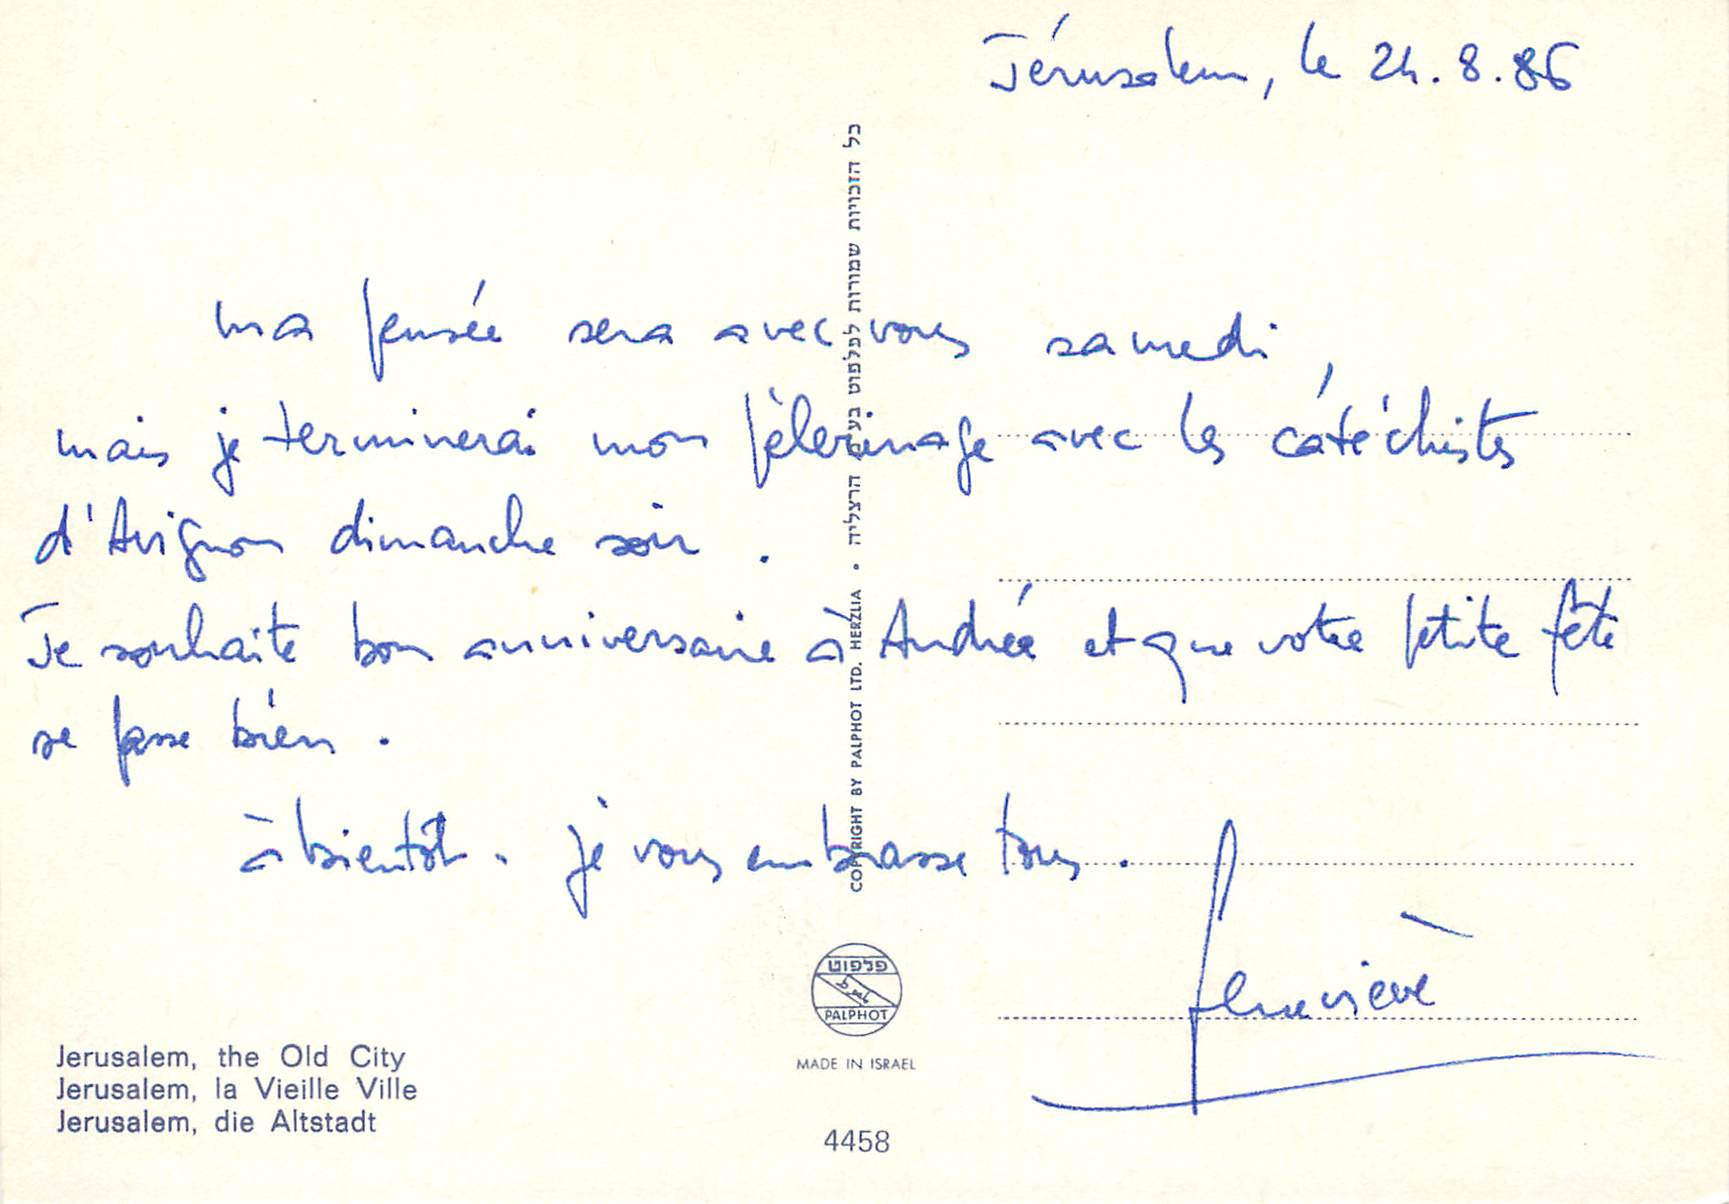 Jérusalem, le 24.8.86
ma pensée sera avec vous samedi,
mais je terminerai mon pèlerinage avec les catéchistes
d'Avignon dimanche soir.
Je souhaite bon anniversaire à Andrée et que votre petite fête
se passe bien.
à bientôt. je vous embrasse tous.
Geneviève
כל הזכויות שמורות לפלפוט בע"מ הרצליה • COPYRIGHT BY PALPHOT LTD. HERZLIA
פלפוט
PALPHOT
MADE IN ISRAEL
4458
Jerusalem, the Old City
Jerusalem, la Vieille Ville
Jerusalem, die Altstadt